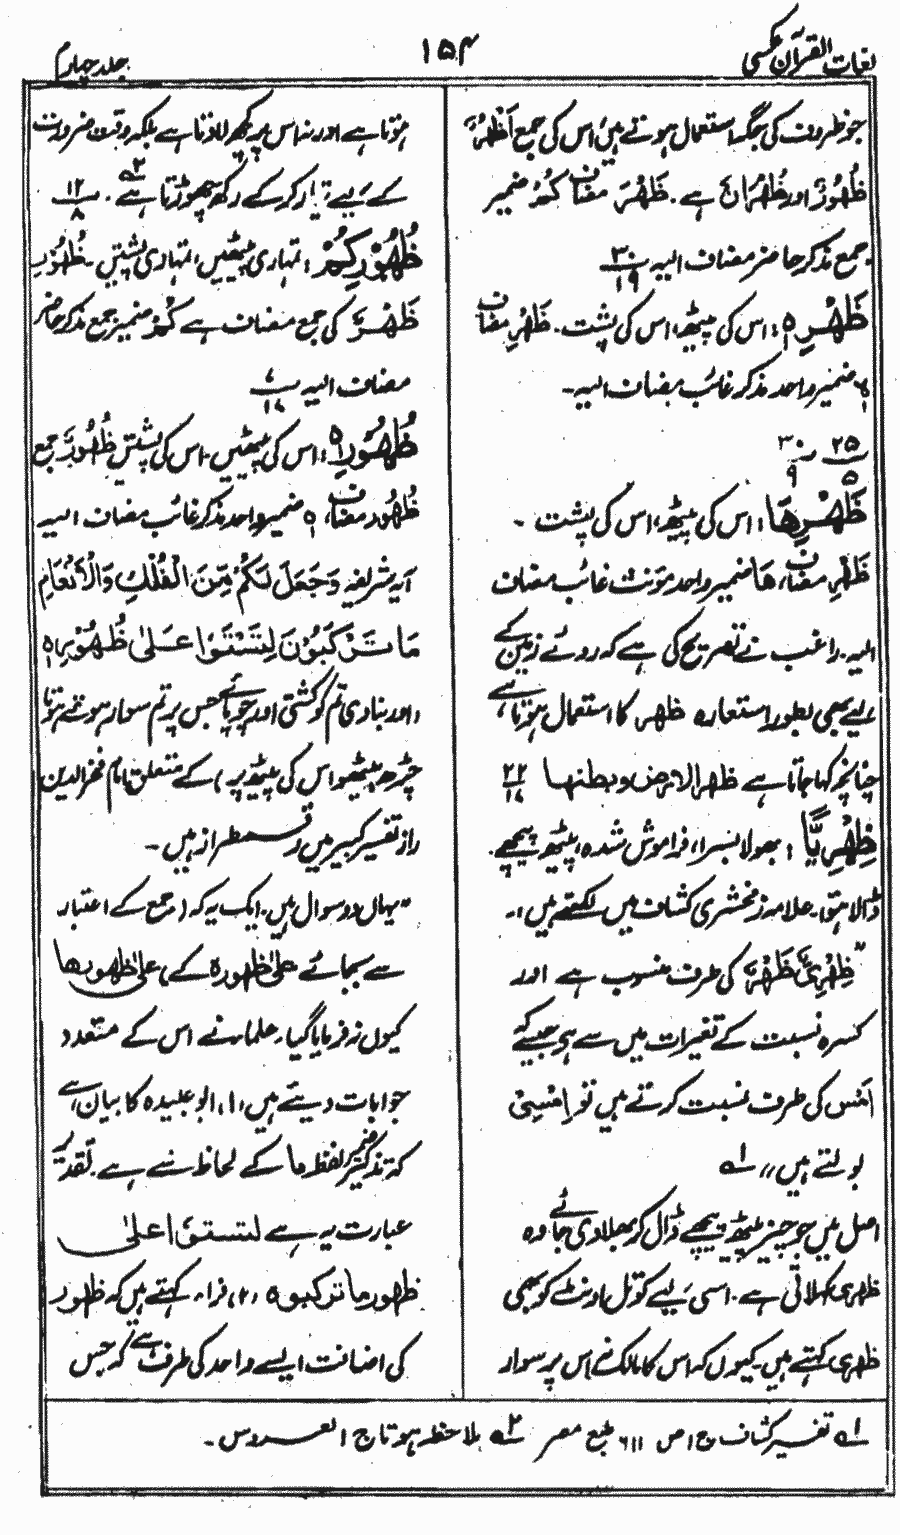 لغات القرآن عکسی
۱۵۴
جلد چہارم
جو ظروف کی جگہ استعمال ہوتے ہیں، اس کی جمع اَظْہُرٌ،
ظُہُوْرٌ اور ظُہْرَانٌ ہے۔ ظَہْرَ مضاف کُمْ ضمیر
جمع مذکر حاضر مضاف الیہ ۳۰/۱۹
ظَہْرِہٖ: اس کی پیٹھ، اس کی پشت۔ ظَہْرِ مضاف
ہٖ ضمیر واحد مذکر غائب مضاف الیہ۔
۲۵/۵ ۳۰/۹
ظَہْرِهَا: اس کی پیٹھ، اس کی پشت۔
ظَہْرِ مضاف، هَا ضمیر واحد مؤنث غائب مضاف
الیہ۔ راغب نے تصریح کی ہے کہ روئے زمین کے
لیے بھی بطور استعارہ ظہر کا استعمال ہوتا ہے،
چنانچہ کہا جاتا ہے ظہر الارض وبطنہا ۲۲/۱۶
ظِہْرِیًّا: بھولا بسرا، فراموش شدہ، پیٹھ پیچھے
ڈالا ہوا۔ علامہ زمخشری کشاف میں لکھتے ہیں:۔
"ظِہْرِیٌّ ظَہْرٌ کی طرف منسوب ہے اور
کسرہ نسبت کے تغیرات میں سے ہے جیسے کہ
اَمْسِ کی طرف نسبت کرتے ہیں تو اِمْسِیٌّ
بولتے ہیں،، ۱ھ
اصل میں جو چیز پیٹھ پیچھے ڈال کر بھلا دی جائے وہ
ظہری کہلاتی ہے۔ اسی لیے کوتل اونٹ کو بھی
ظہری کہتے ہیں۔ کیوں کہ اس کا مالک نے اس پر سوار
ہوتا ہے اور نہ اس پر کچھ لادتا ہے بلکہ وقت ضرورت
کے لیے تیار کر کے رکھ چھوڑتا ہے ۲ھ۔ ۱۲/۸
ظُہُوْرِکُمْ: تمہاری پیٹھیں، تمہاری پشتیں۔ ظُہُوْرِ
ظَہْرٌ کی جمع مضاف ہے کُمْ ضمیر جمع مذکر حاضر
مضاف الیہ
ظُہُوْرِہٖ: اس کی پیٹھیں۔ اس کی پشتیں ظُہُوْرِ جمع
ظُہُور مضاف، ہٖ ضمیر واحد مذکر غائب مضاف الیہ
آیہ شریفہ وَجَعَلَ لَکُمْ مِّنَ الْفُلْکِ وَالْاَنْعَامِ
مَا تَرْکَبُوْنَ لِتَسْتَوٗا عَلٰی ظُہُوْرِہٖ
(اور بنا دی تم کو کشتی اور چوپائے جس پر تم سوار ہوتے ہو تا
چڑھ بیٹھو اس کی پیٹھ پر) کے متعلق امام فخر الدین
رازی تفسیر کبیر میں رقمطراز ہیں۔
"یہاں دو سوال ہیں۔ ایک یہ کہ (مرجع کے اعتبار
سے بجائے علیٰ ظہورہ کے) علیٰ ظہورھا
کیوں نہ فرمایا گیا۔ علماء نے اس کے متعدد
جوابات دیئے ہیں، ۱، ابو عبیدہ کا بیان ہے
کہ تذکیر ضمیر لفظ ما کے لحاظ سے ہے۔ تقدیر
عبارت یہ ہے لتستوٗا علیٰ
ظہور ما ترکبوہ، (۲) فراء کہتے ہیں کہ ظہور
کی اضافت ایسے واحد کی طرف ہے کہ جس
۱ھ تفسیر کشاف ج ۱ ص ۱۱۶ طبع مصر ۲ھ ملاحظہ ہو تاج العروس۔